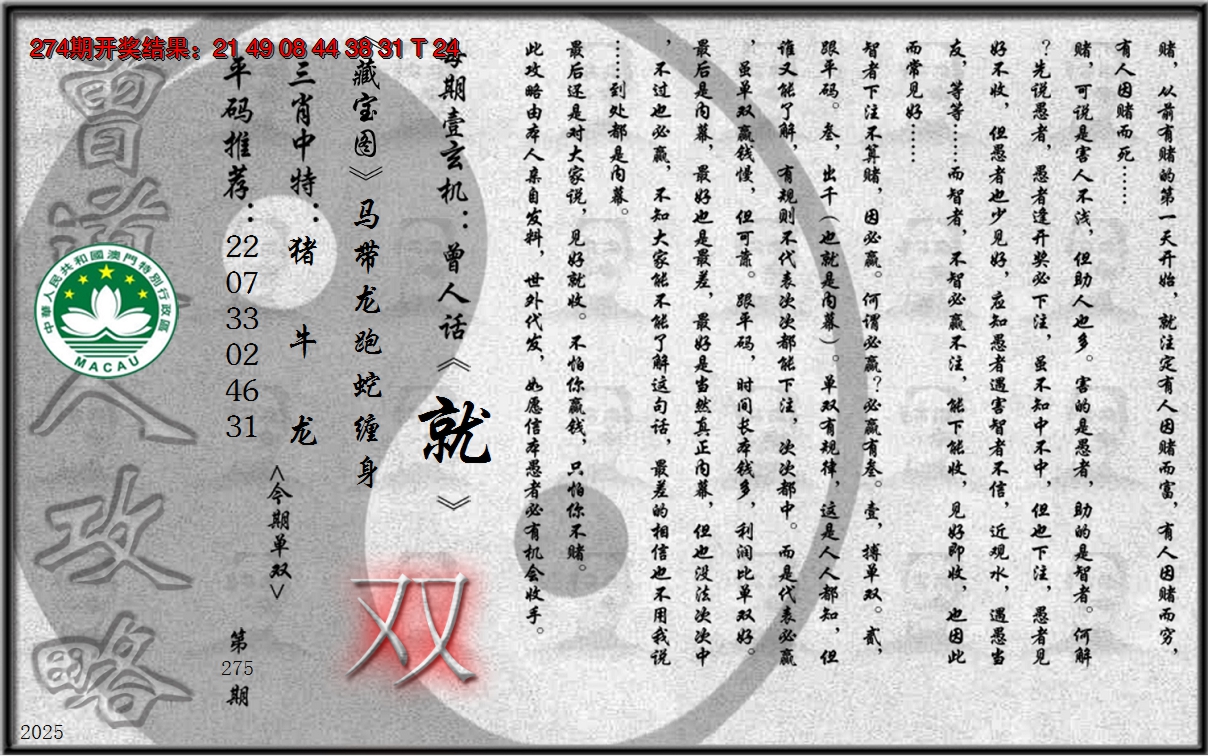 274期开奖结果：21 49 08 44 38 31 T 24
赌，从前有赌的第一天开始，就注定有人因赌而富，有人因赌而穷，
有人因赌而死……
赌，可说是害人不浅，但助人也多。害的是愚者，助的是智者。何解
？先说愚者，愚者逢开奖必下注，虽不知中不中，但也下注，愚者见
好不收，但愚者也少见好，应知愚者遇害智者不信，近观水，遇愚当
友，等等……而智者，不智必赢不注，能下能收，见好即收，也因此
而常见好……
智者下注不算赌，因必赢。何谓必赢？必赢有叁。壹，搏单双。贰，
跟平码。叁，出千（也就是内幕）。单双有规律，这是人人都知，但
谁又能了解，有规则不代表次次都能下注，次次都中。而是代表必赢
，虽单双赢钱慢，但可靠。跟平码，时间长本钱多，利润比单双好。
最后是内幕，最好也是最差，最好是当然真正内幕，但也没法次次中
，不过也必赢，不知大家能不能了解这句话，最差的相信也不用我说
……到处都是内幕。
最后还是对大家说，见好就收。不怕你赢钱，只怕你不赌。
此攻略由本人亲自发料，世外代发，如愿信本愚者必有机会收手。
每期壹玄机：曾人话《就》
《藏宝图》马带龙跑蛇缠身
双
三肖中特：猪 牛 龙
<今期单双>
平码推荐：
22
07
33
02
46
31
第
275
期
曾道人攻略
中華人民共和國澳門特別行政區
MACAU
2025